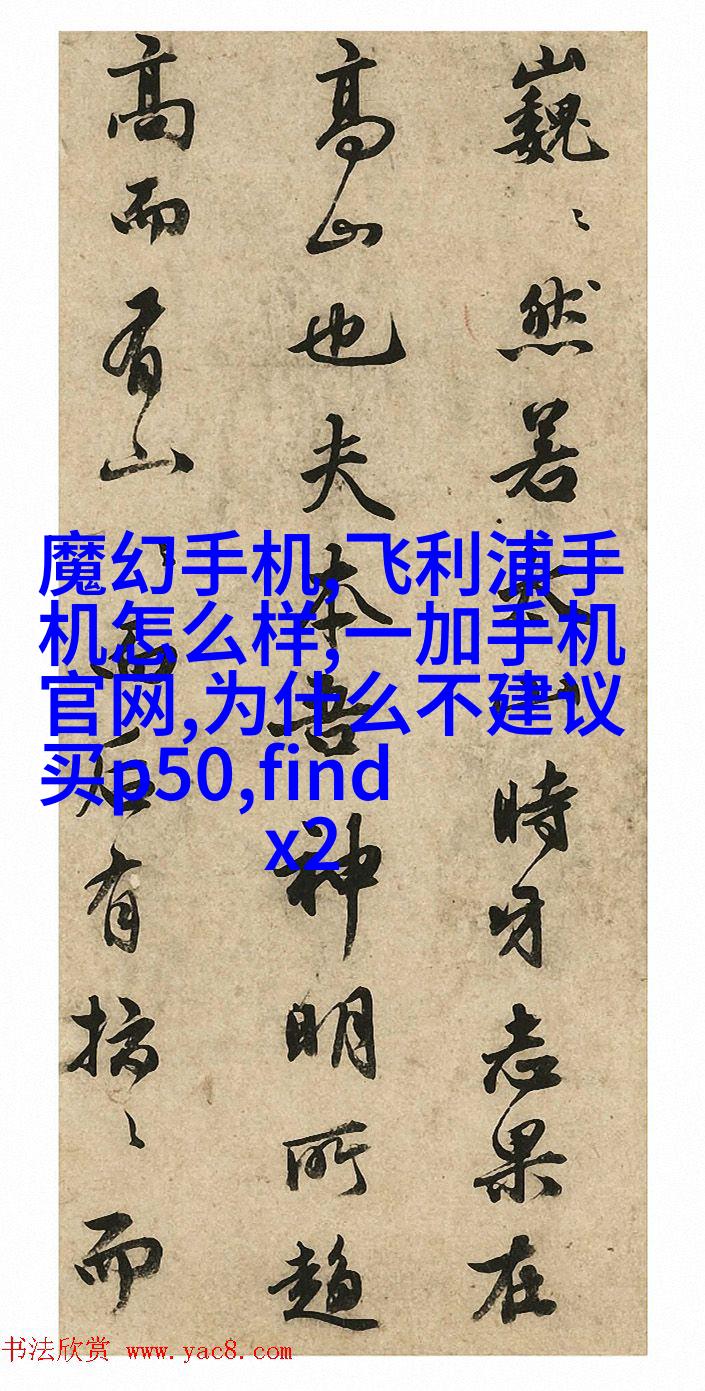 巍〻然若太山時牙志果在
高山也夫本吾神明所趨
高而有山有而
魔幻手机,飞利浦手
机怎么样,一加手机
官网,为什么不建议
买p50,find
x2
书法欣赏 www.yac8.com